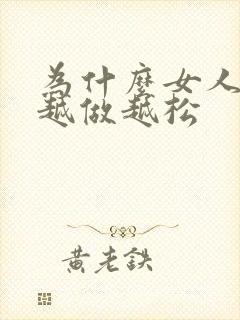 為什麼女人
越做越松
黃老鉄